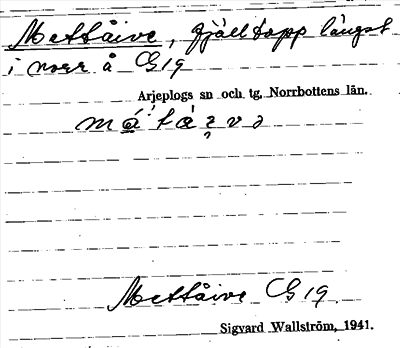 Mettåive, fjälltopp längst
i norr å G19
Arjeplogs sn och tg, Norrbottens län.
Mettåive G 19.
Sigvard Wallström, 1941.